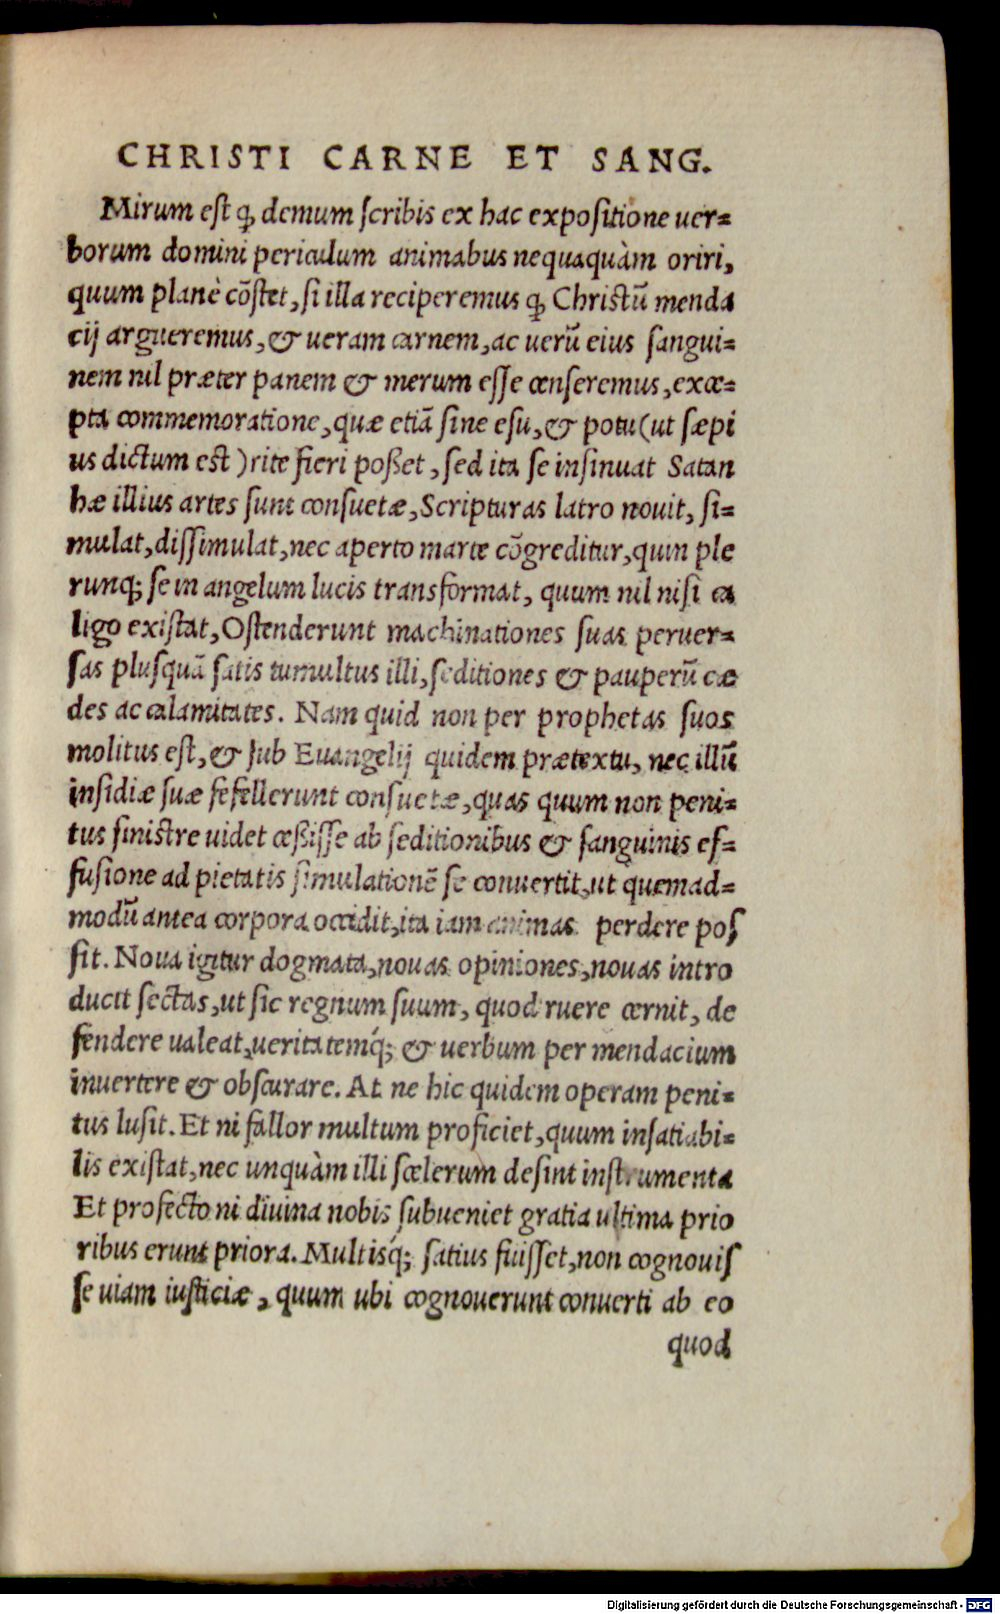 CHRISTI CARNE ET SANG.
Mirum est ꝙ demum scribis ex hac expositione uer=
borum domini periculum animabus nequaquàm oriri,
quum planè cõstet, si illa reciperemus ꝙ Christũ menda
cij argueremus, & ueram carnem, ac uerũ eius sangui=
nem nil præter panem & merum esse censeremus, exce=
pta commemoratione, quæ etiã sine esu, & potu (ut sæpi
us dictum est) rite fieri posset, sed ita se insinuat Satan
hæ illius artes sunt consuetæ, Scripturas latro nouit, si=
mulat, dissimulat, nec aperto marte cõgreditur, quin ple
runq; se in angelum lucis transformat, quum nil nisi ca
ligo existat, Ostenderunt machinationes suas peruer=
sas plusquã satis tumultus illi, seditiones & pauperũ cæ
des ac calamitates. Nam quid non per prophetas suos
molitus est, & sub Euangelij quidem prætextu, nec illũ
insidiæ suæ fefellerunt consuetæ, quas quum non peni=
tus sinistre uidet cessisse ab seditionibus & sanguinis ef=
fusione ad pietatis simulationẽ se conuertit, ut quemad=
modũ antea corpora occidit, ita iam animas perdere pos
sit. Noua igitur dogmata, nouas opiniones, nouas intro
ducit sectas, ut sic regnum suum, quod ruere cernit, de
fendere ualeat, ueritatemq́; & uerbum per mendacium
inuertere & obscurare. At ne hic quidem operam peni=
tus lusit. Et ni fallor multum proficiet, quum insatiabi=
lis existat, nec unquàm illi scelerum desint instrumenta
Et profecto ni diuina nobis subueniet gratia ultima prio
ribus erunt priora. Multisq́; satius fuisset, non cognouis
se uiam iusticiæ, quum ubi cognouerunt conuerti ab eo
quod
Digitalisierung gefördert durch die Deutsche Forschungsgemeinschaft - DFG